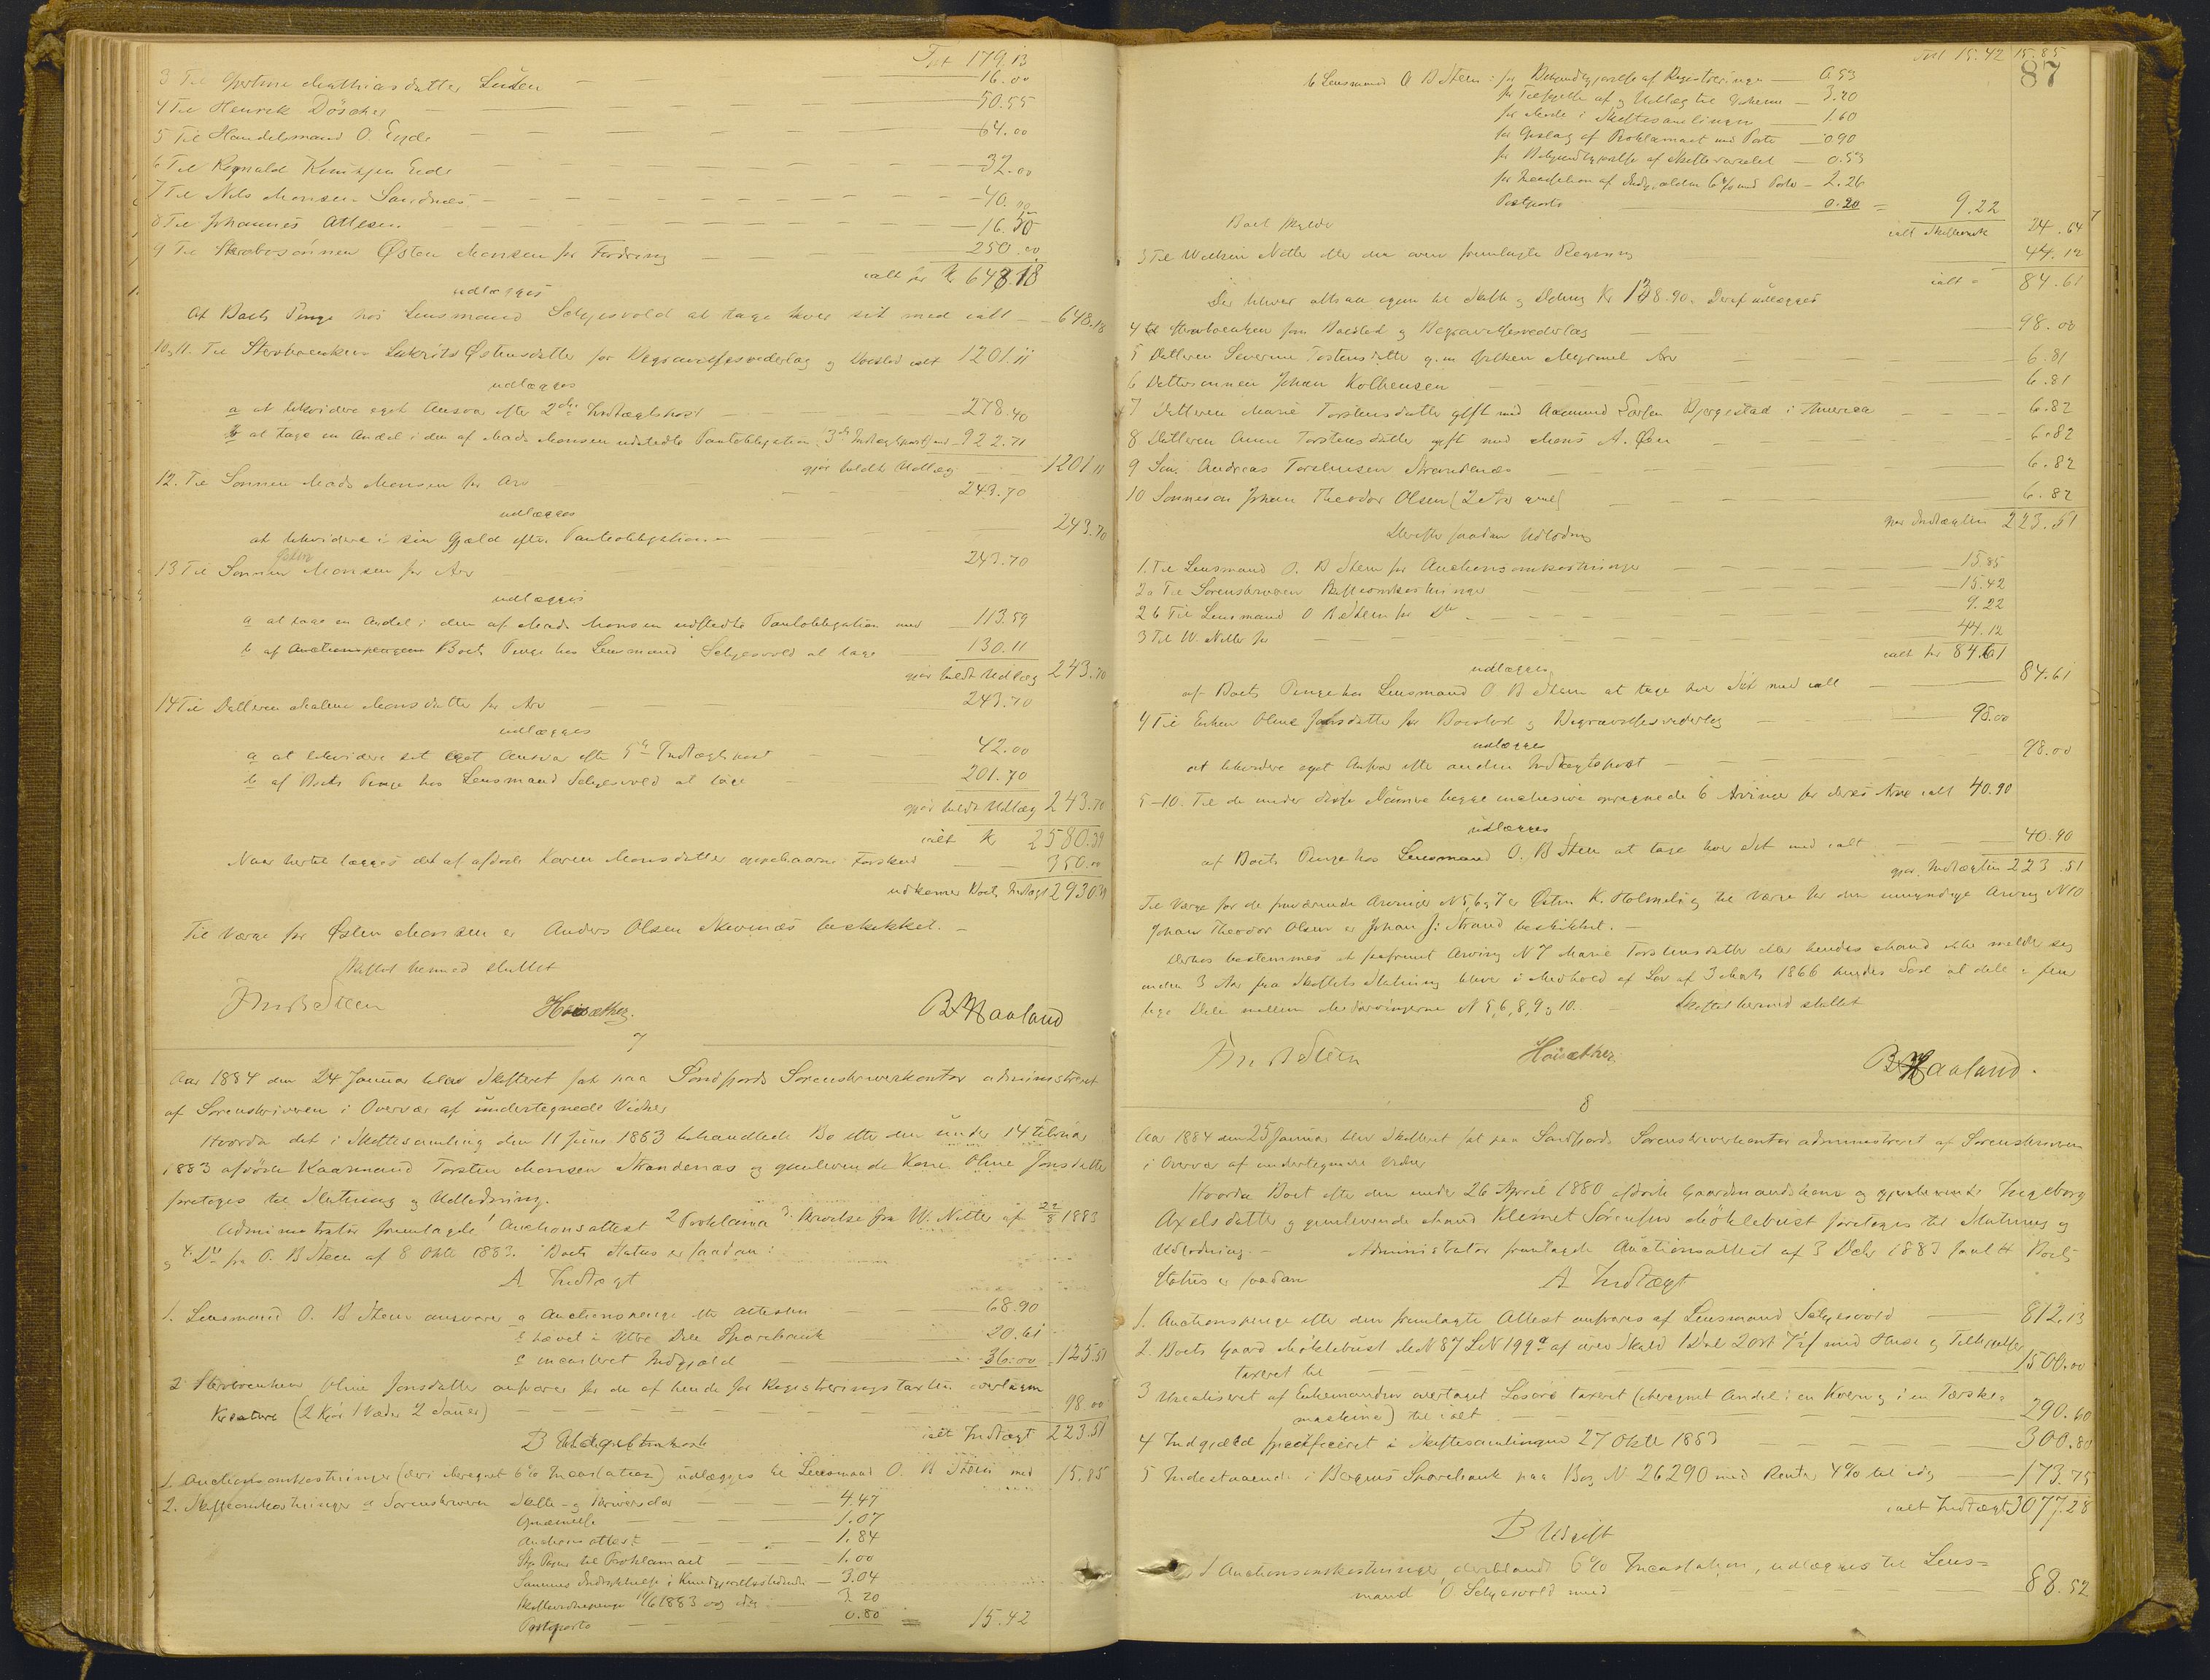 Tpt 179.13
3 Til Gjertine Mathiasdatter 16.00
4 Til Henrik Döscher 50.55
5 Til Handelsmand O. Eyde 64.00
6 Til Reynald Knutsen Eide 32.00
7 Til Nils Monsen Sandnes 40.00
8 Til Johannes Attesen 16.50
9 Til Sterbosönnen Østen Monsen for Fordring 250.00
ialt for Kr 648.18
udlægges
At Boets Penge hos Lensmand Selgesvold at tage hver sit med ialt 648.18
10, 11. Til Sterboenken Østensdatter for Begravelsesvederlag og Boeslod ialt 1201.11
udlægges
a at likvidere eget Ansvar efter 2den Indtægtspost 278.40
b at tage en Andel i den af Mads Monsen udstedte Pantobligation 3die Indtægtspost med 922.71
gjør heldt Udlæg 1201.11
12. Til Sønnen Mads Monsen for Arv 243.70
udlægges
at likvidere i sin Gjæld efter Pantobligationen 243.70
13 Til Sønnen Østen Monsen for Arv 243.70
udlægges
a at tage en Andel i den af Mads Monsen udstedte Pantobligation med 113.59
b af Auctionspengene Boets Penge hos Lensmand Selgesvold at tage 130.11
gjør heldt Udlæg 243.70
14 Til Datteren Malene Monsdatter for Arv 243.70
udlægges
a at likvidere sit eget Ansvar efter 5te Indtægtspost 42.00
b af Boets Penge hos Lensmand Selgesvold at tage 201.70
gjør heldt Udlæg 243.70
ialt Kr 2580.39
Naar hertil lægges det af afdøde Karen Monsdatter oppebaarne Forskud 350.00
udkommer Boets Indtægt 2930.39
Til Værge for Østen Monsen er Anders Olsen beskikket.
Skiftet hermed sluttet
Fr. B Steen Hoisæther. B. Haaland
7
Aar 1884 den 24 Januar blev Skifteret sat paa Söndfjords Sorenskriverkontor administreret
af Sorenskriveren i Overvær af undertegnede Vidner
Hvorda det i Skiftesamling den 11 Juni 1883 behandlede Bo efter den under 14 Februar
1883 afdøde Kaarmand Torsten Monsen Strandenæs og gjenlevende Kone Oline Jonsdatter
foretoges til Slutning og Udlodning.
Administrator fremlagde 1 Auctionsattest 2 Proklama 3. Skrivelse fra W. Nitter af 22/8 1883
og 4. Do fra O. B Steen af 8 Okt 1883. Boets Status er saadan:
A Indtægt
1. Lensmand O. B Steen ansvarer a Auctionspenge efter Attesten 68.90
b hævet i Ytre Dale Sparebank 20.61
c incasseret Indgjæld 36.00 125.51
2 Sterboenken Oline Jonsdatter ansvarer for de af hende for Registreringstaxten overtagne
Kreature (2 Kjør 1 Væder 2 Sauer) 98.00
ialt Indtægt 223.51
B Udgift
1 Auctionsomkostninger (deri beregnet 6% Incassation) udlægges til Lensmand O. B Steen med 15.85
2. Skifteomkostninger a Sorenskriveren Skifte- og Skriversalær 4.47
1.07
Auctionsattest 1.84
Stp. Papir til Proklamaet 1.00
Sammes Indrykkelse i Kundgjørelsestidende 3.04
Skiftevidnepenge 11/6 1883 og idag 3.20
Postporto 0.80 = 15.42
Tpt 15.42 15.85
87
b Lensmand O B Steen: for Bekjendtgjørelse af Registreringen 0.53
for Tilsigelse af og Udlæg til Vidnerne 3.20
for Møde i Skiftesamlingen 1.60
for Opslag af Proklamaet med Porto 0.90
for Bekjendtgjørelse af Skiftevarselet 0.53
for Incassation af Indgjælden 6% med Porto 2.26
Postporto 0.20 = 9.22
ialt Skifteomk 24.64
Boets Gjæld
3 Til Nitter efter den ovenfremlagte Regning 44.12
ialt = 84.61
Der bliver altsaa igjen til Skifte og Deling Kr 138.90. Deraf udlægges
4 til Sterboenken som Boeslod og Begravelsesvederlag 98.00
5 Datteren Severine Torstensdatter g.m. Arv 6.81
6 Dattersønnen Johan Kolbensen 6.81
7 Datteren Marie Torstensdatter gift med Aamund Larsen Bjergestad i America 6.82
8 Datteren Anne Torstensdatter gift med Mons A. Øen 6.82
9 Søn Andreas Torstensen Strandenæs 6.82
10 Sønnesøn Johan Theodor Olsen (2 Aar gml) 6.82
gjør Indtægten 223.51
Derefter saadan Udlodning
1. Til Lensmand O. B Steen for Auctionsomkostninger 15.85
2a Til Sorenskriveren Skifteomkostninger 15.42
2b Til Lensmand O B Steen for Do 9.22
3 Til W. Nitter for 44.12
ialt for 84.61
udlægges
af Boets Penge hos Lensmand O. B Steen at tage hver Sit med ialt 84.61
4 Til Enken Oline Jonsdatter for Boeslod og Begravelsesvederlag 98.00
udlægges
at likvidere eget Ansvar efter anden Indtægtspost 98.00
5-10. Til de under disse Numre begge inclusive opregnede 6 Arvinger for deres Arv ialt 40.90
udlægges
af Boets Penge hos Lensmand O. B Steen at tage hver Sit med ialt 40.90
gjør Indtægten 223.51
Til Værge for de fraværende Arvinger N 5, 6 og 7 er Østen K. Holmelid og til Værge for den umyndige Arving N 10
Johan Theodor Olsen er Johan J: Strand beskikket.
Derhos bestemmes at saafremt Arving N 7 Marie Torstensdatter eller hendes Mand ikke melder sig
inden 3 Aar fra Skiftets Slutning bliver i Medhold af Lov af 3 Marts 1866 hendes Lod at dele i fem
lige Dele mellem Medarvingerne N 5, 6, 8, 9 og 10. Skiftet hermed sluttet
Fr. B Steen Hoisæther B. Haaland.
8
Aar 1884 den 25 Januar blev Skifteret sat paa Söndfjords Sorenskriverkontor administreret af Sorenskriveren
i Overvær af undertegnede Vidner
Hvorda Boet efter den under 26 April 1880 afdøde Gaardmandskone Ingeborg
Axelsdatter og gjenlevende Mand Klemet Sørensen Möklebust foretoges til Slutning og
Udlodning - Administrator fremlagde Auctionsattest af 3 Decbr 1883 Boets
Status er saadan A Indtægt
1. Auctionspenge efter den fremlagte Attest ansvares af Lensmand Selgesvold 812.13
2. Boets Gaard Möklebust M.N 87 L.N 199a af urev. Skyld 1 Dal 2 ort 7 ß med Huse og Tilbehørelse
taxeret til 1500.00
3 Urealiseret af Enkemanden overtaget Løsøre taxeret (iberegnet Andel i en Kvern og i en Tærske-
maskine) til ialt 290.60
4 Indgjæld specificeret i Skiftesamlingen 27 Okt 1883 300.80
5 Indestaaende i Bergens Sparebank paa Bog N 26290 med Renter 4% til idag 173.75
ialt Indtægt 3077.28
B Udgift
1 Auctionsomkostninger, deriblandt 6% Incassation, udlægges til Lens-
mand O. Selgesvold med 88.52